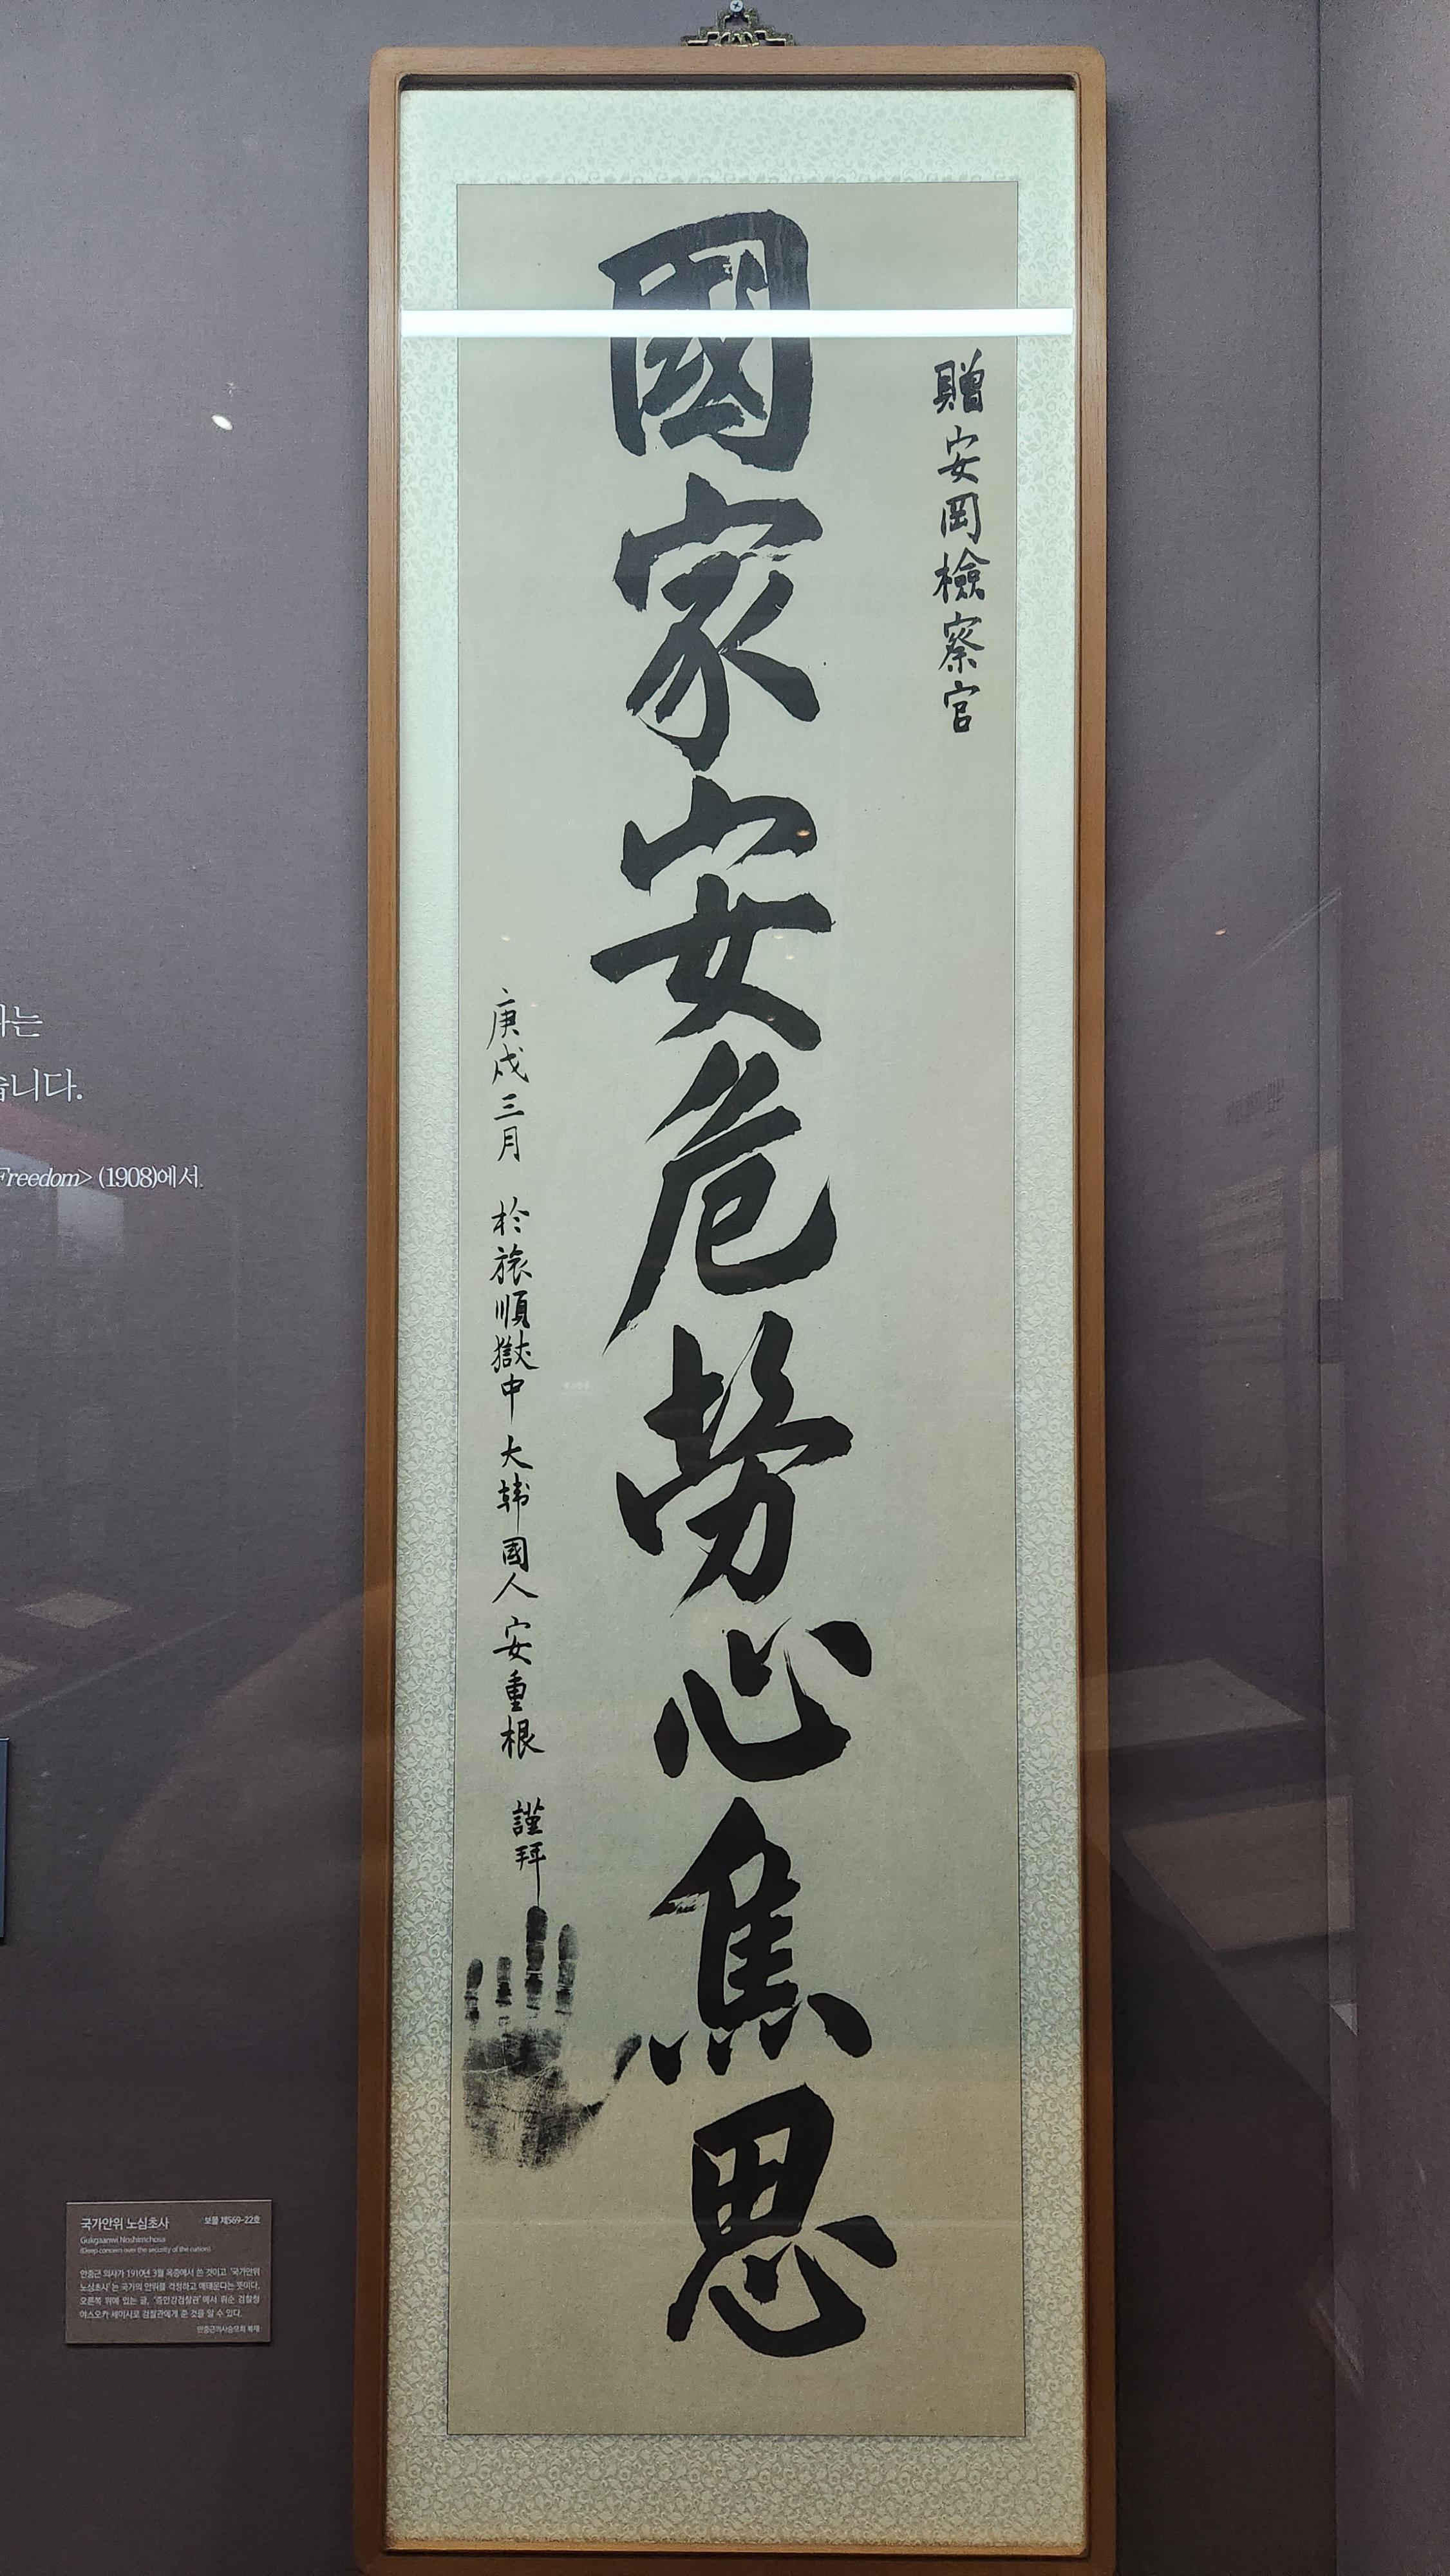 贈安岡檢察官
國家安危勞心焦思
庚戌三月 於旅順獄中 大韓國人 安重根 謹拜
습니다.
Freedom> (1908)에서.
국가안위 노심초사 보물 제569-22호
Gukgaanwi Noshimchosa
(Deep concern over the security of the nation)
안중근 의사가 1910년 3월 옥중에서 쓴 것이고 '국가안위
노심초사'는 국가의 안위를 걱정하고 애태운다는 뜻이다.
오른쪽 위에 있는 글, '증안강검찰관'에서 뤼순 검찰청
야스오카 세이시로 검찰관에게 준 것을 알 수 있다.
안중근의사숭모회 복제